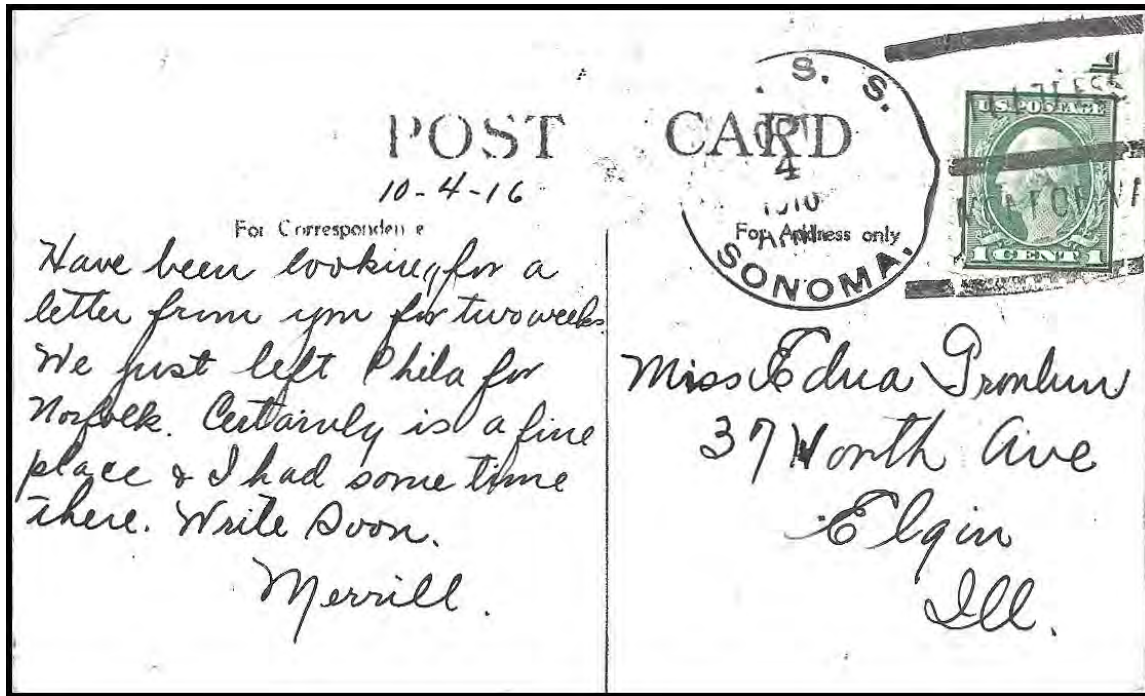 POST CARD
10-4-16
For Correspondence
Have been looking for a
letter from you for two weeks.
We just left Phila for
Norfolk. Certainly is a fine
place & I had some time
there. Write Soon.
Merrill.
S. S.
OCT
4
SONOMA.
For Address only
U.S. POSTAGE
1 CENT 1
Miss Edna
37 Worth Ave
Elgin
Ill.